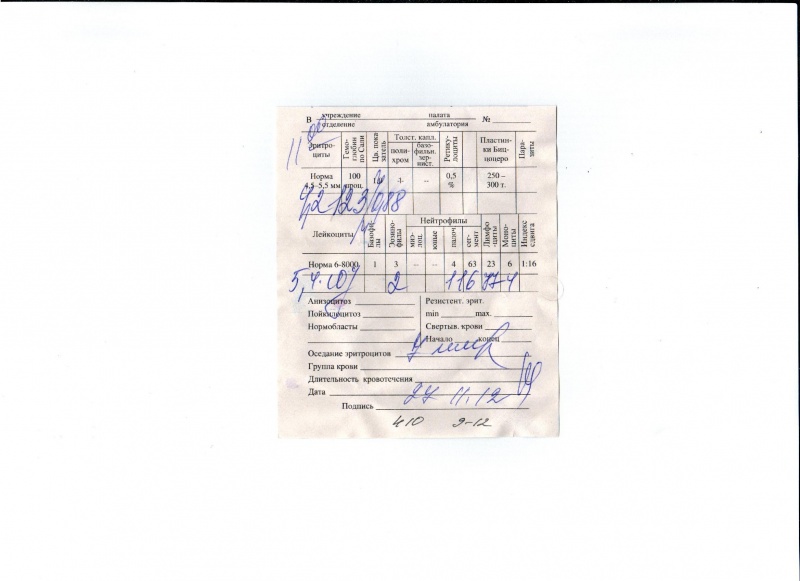 В учреждение палата №
отделение амбулатория
Эритроциты Гемоглобин по Сали Цв. показатель Толст. капл. полихром базофильн. зернист. Ретикулоциты Пластинки Биццоцеро Паразиты
Норма 4,5–5,5 мм 100 проц. 4- -- 0,5 % 250 – 300 т.
4,2 123 0,88
Лейкоциты Базофилы Эозинофилы Нейтрофилы миэлоц. юные палоч сегмент Лимфоциты Моноциты Индекс сдвига
Норма 6-8000 1 3 -- -- 4 63 23 6 1:16
5,4 2 1
Анизоцитоз Резистент. эрит.
Пойкилоцитоз min max.
Нормобласты Свертыв. крови
Начало конец
Оседание эритроцитов
Группа крови
Длительность кровотечения
Дата 27 11.12
Подпись
410 9-12